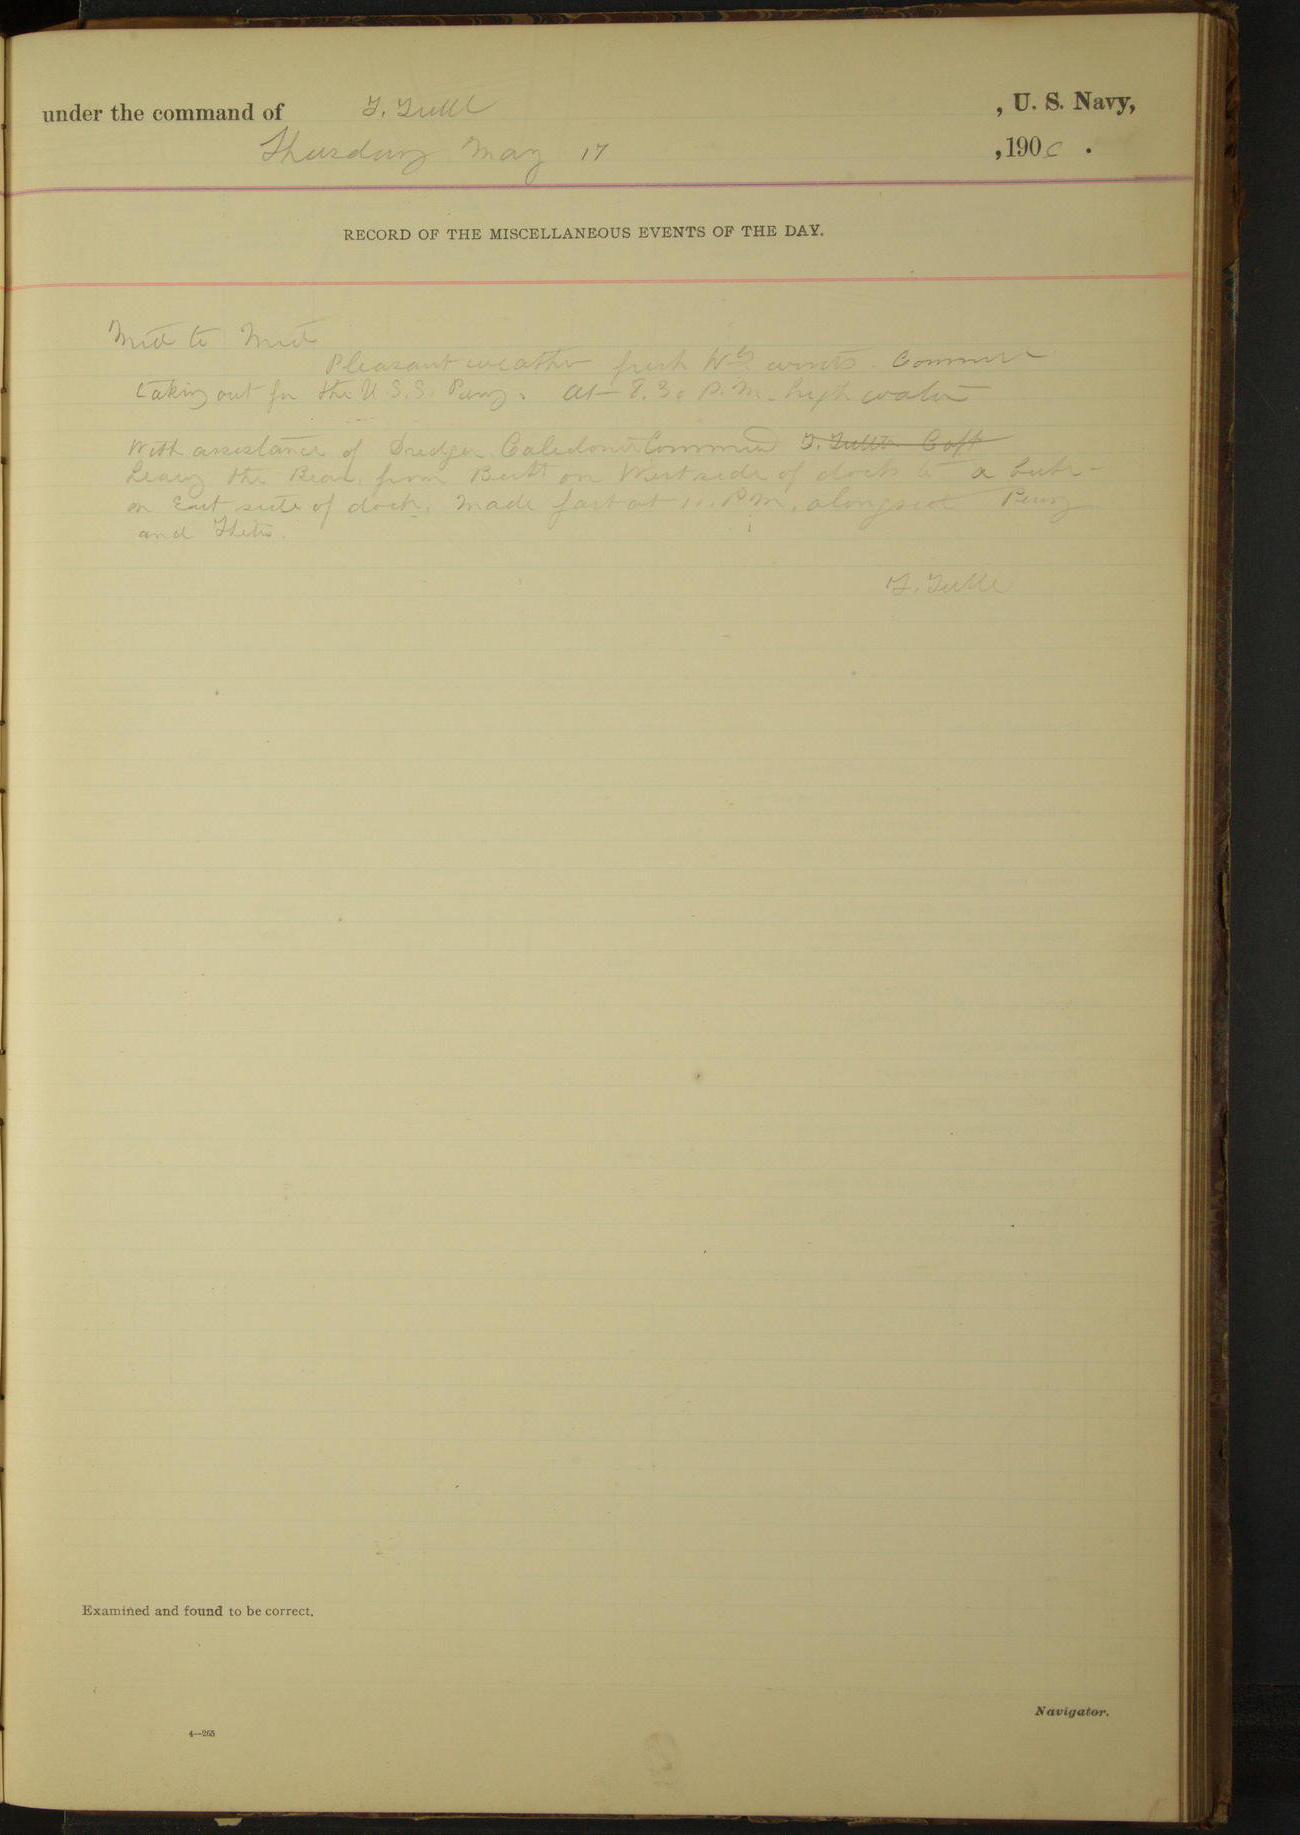 under the command of F. Tuttle , U. S. Navy,
Thursday May 17 , 190
RECORD OF THE MISCELLANEOUS EVENTS OF THE DAY.
Mid to Mid
Pleasant weather fresh winds.
taking out for the U.S.S. Perry. At 8.30 P.M. high water
With assistance of Dredger Caledonia F. Tuttle Capt
the Bear, from Berth on West side of dock to a berth
on East side of dock. Made fast at P.M. alongside Perry
and Thetis.
F. Tuttle
Examined and found to be correct.
Navigator.
4—265